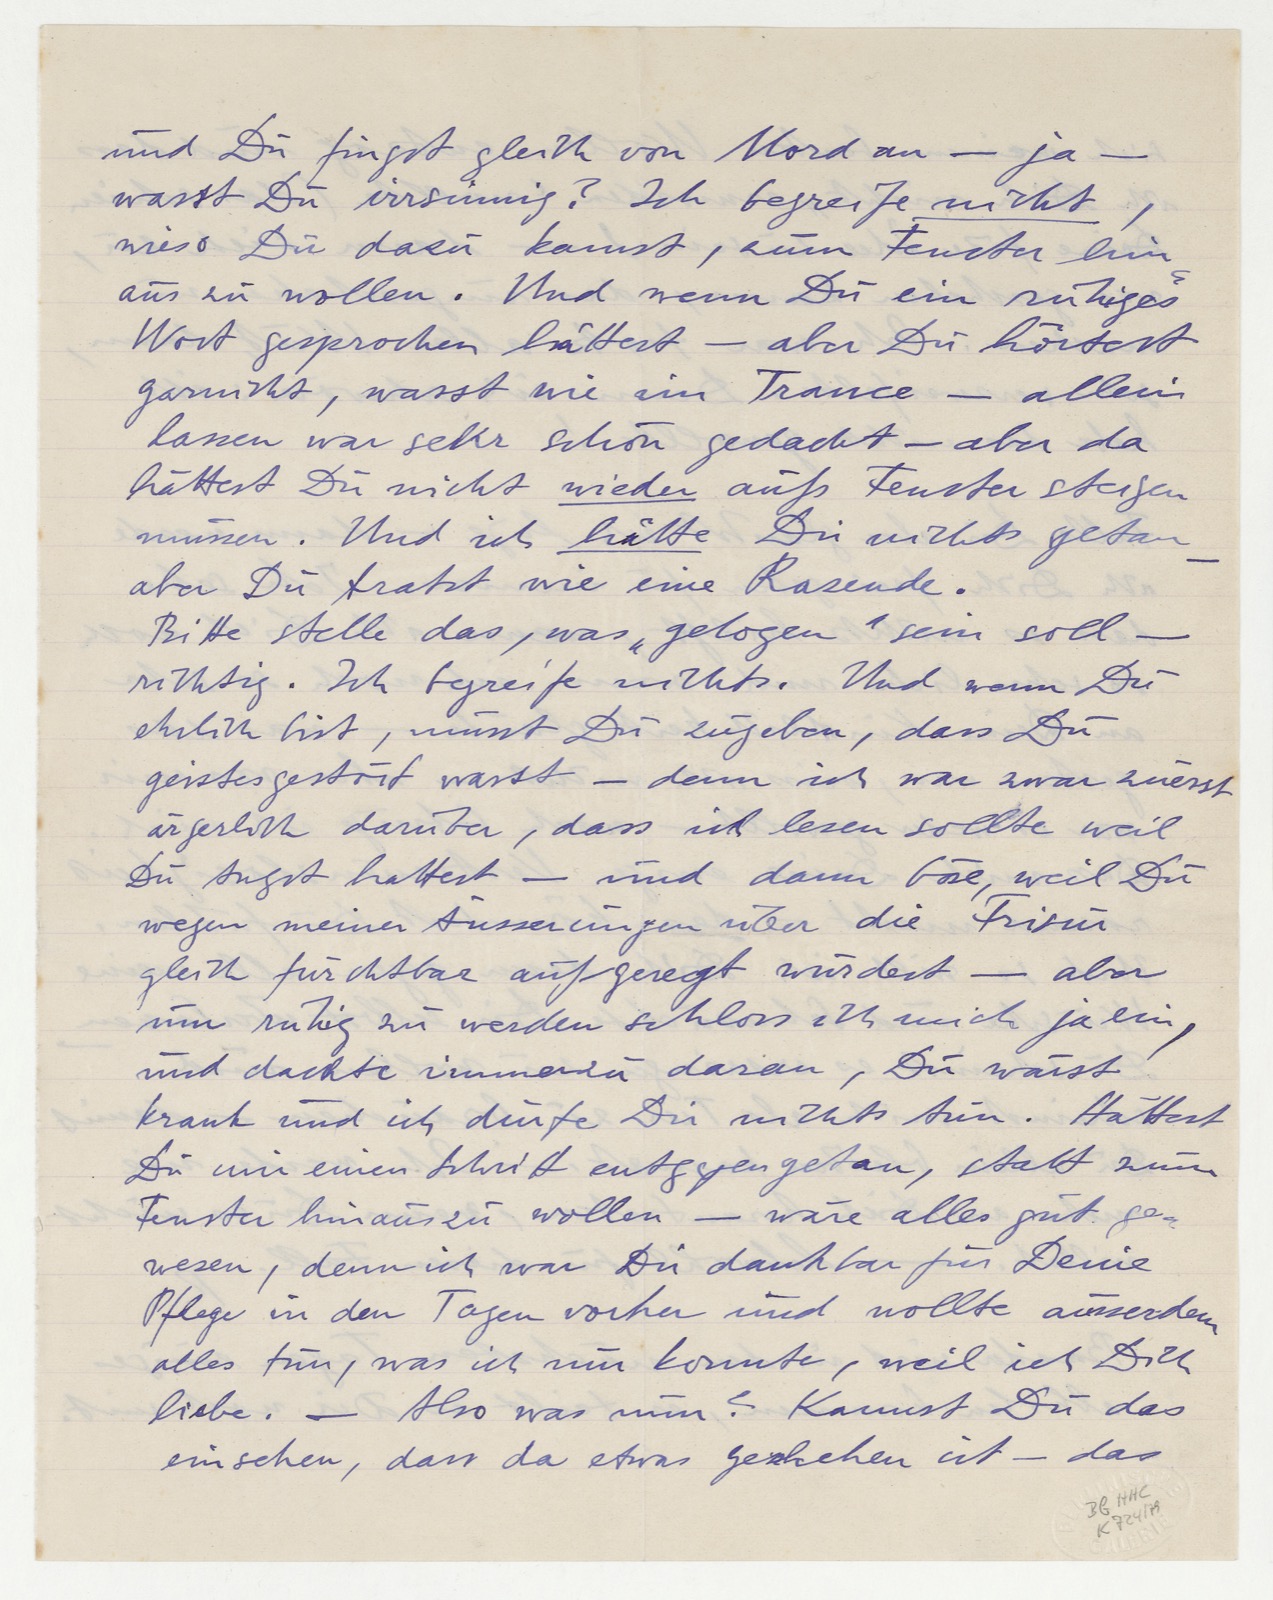 und Du fingst gleich von Mord an — ja —
warst Du irrsinnig? Ich begreife nicht,
wieso Du dazu kamst, zum Fenster hin-
aus zu wollen. Und wenn Du ein ruhiges
Wort gesprochen hättest — aber Du hörtest
garnicht, warst wie im Trance — allein
lassen war sehr schön gedacht — aber da
hättest Du nicht wieder aufs Fenster steigen
müssen. Und ich hätte Dir nichts getan —
aber Du tratst wie eine Rasende.
Bitte stelle das, was „gelogen“ sein soll —
richtig. Ich begreife nichts. Und wenn Du
ehrlich bist, musst Du zugeben, dass Du
geistesgestört warst — denn ich war zwar zuerst
ärgerlich darüber, dass ich lesen sollte weil
Du Angst hattest — und dann böse, weil Du
wegen meiner Äusserungen über die Frisur
gleich furchtbar aufgeregt wurdest — aber
um ruhig zu werden schloss ich mich ja ein,
und dachte immerzu daran, Du wärst
krank und ich dürfe Dir nichts tun. Hättest
Du mir einen Schritt entgegengetan, statt zum
Fenster hinauszu wollen — wäre alles gut ge-
wesen, denn ich war Dir dankbar für Deine
Pflege in den Tagen vorher und wollte ausserdem
alles tun, was ich nur konnte, weil ich Dich
liebe. — Also was nun? Kannst Du das
einsehen, dass da etwas geschehen ist — das
BG HHC
K 724/79